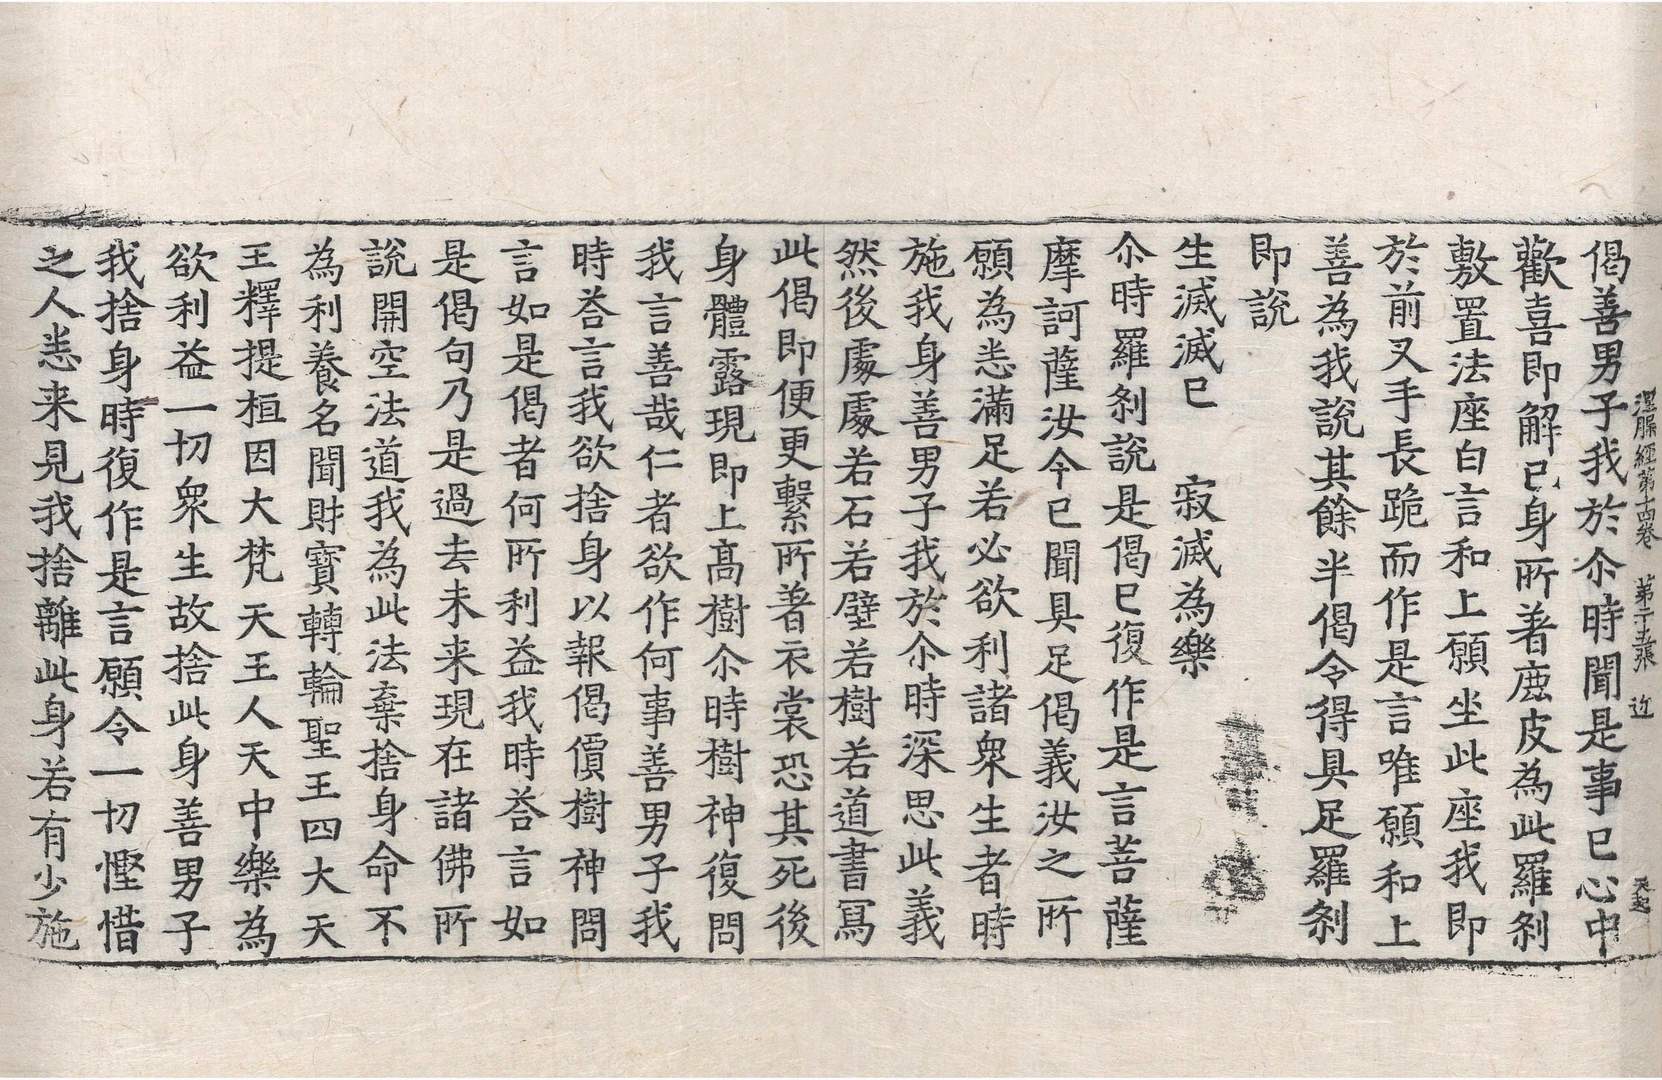 涅槃經第十四卷 第二十五張 近
偈善男子我於尒時聞是事已心中
歡喜即解已身所著鹿皮為此羅剎
敷置法座白言和上願坐此座我即
於前叉手長跪而作是言唯願和上
善為我說其餘半偈令得具足羅剎
即說
生滅滅已 寂滅為樂
尒時羅剎說是偈已復作是言菩薩
摩訶薩汝今已聞具足偈義汝之所
願為悉滿足若必欲利諸衆生者時
施我身善男子我於尒時深思此義
然後處處若石若壁若樹若道書寫
此偈即便更繫所著衣裳恐其死後
身體露現即上高樹尒時樹神復問
我言善哉仁者欲作何事善男子我
時荅言我欲捨身以報偈價樹神問
言如是偈者何所利益我時荅言如
是偈句乃是過去未來現在諸佛所
說開空法道我為此法棄捨身命不
為利養名聞財寶轉輪聖王四大天
王釋提桓因大梵天王人天中樂為
欲利益一切衆生故捨此身善男子
我捨身時復作是言願令一切慳惜
之人悉来見我捨離此身若有少施